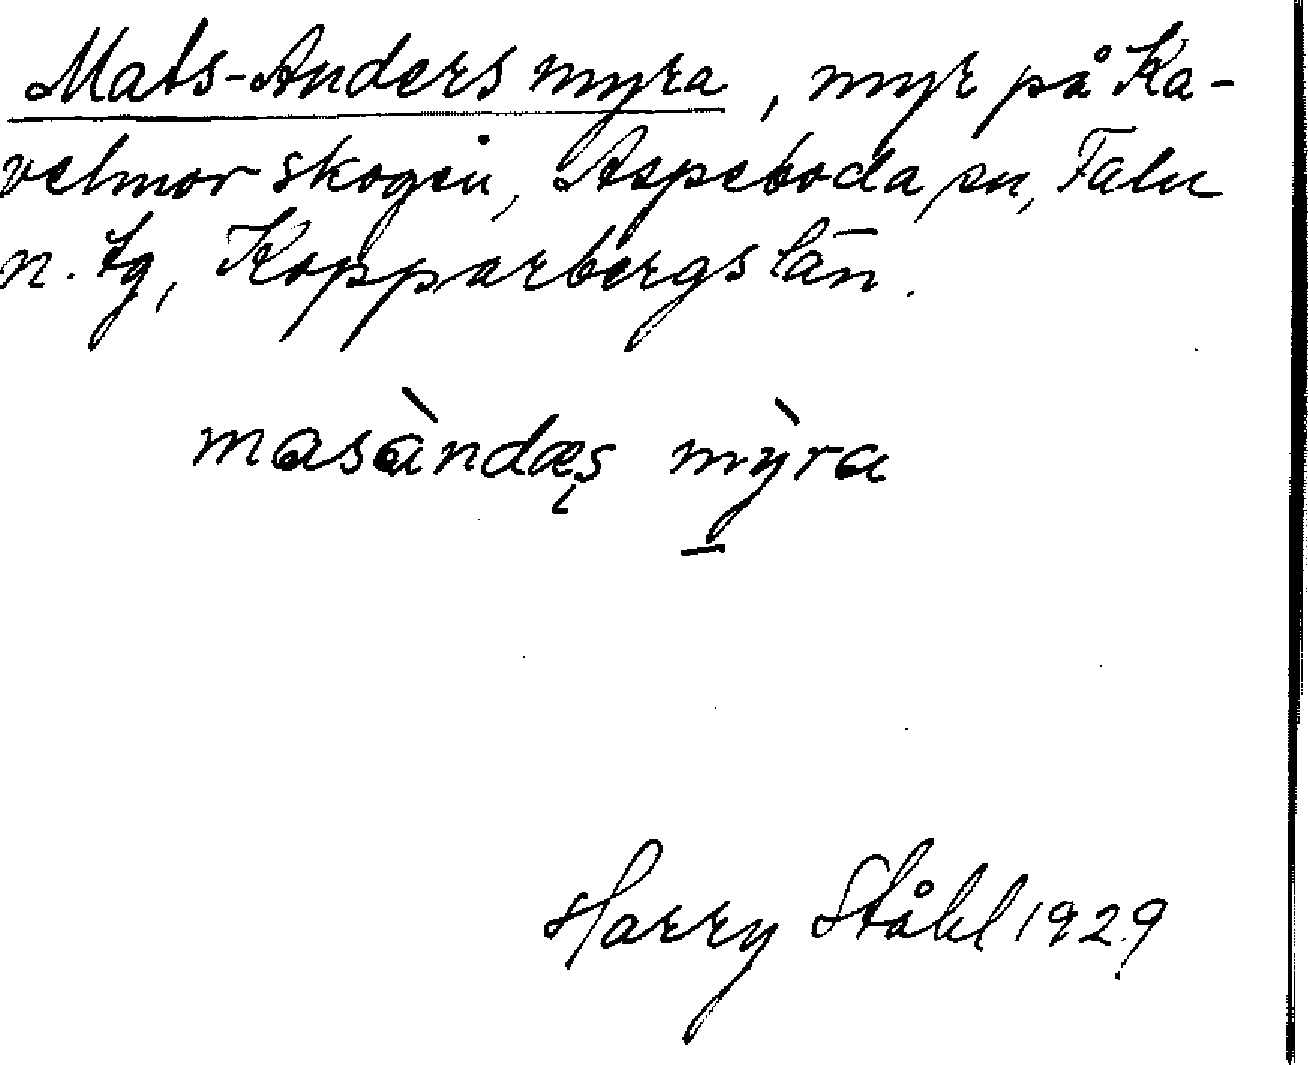 Mats-Anders myra, myr på Ka-
velmorskogen, Aspeboda sn, Falu
n. tg, Kopparbergs län.
masàndæs mỳra
Harry Ståhl 1929